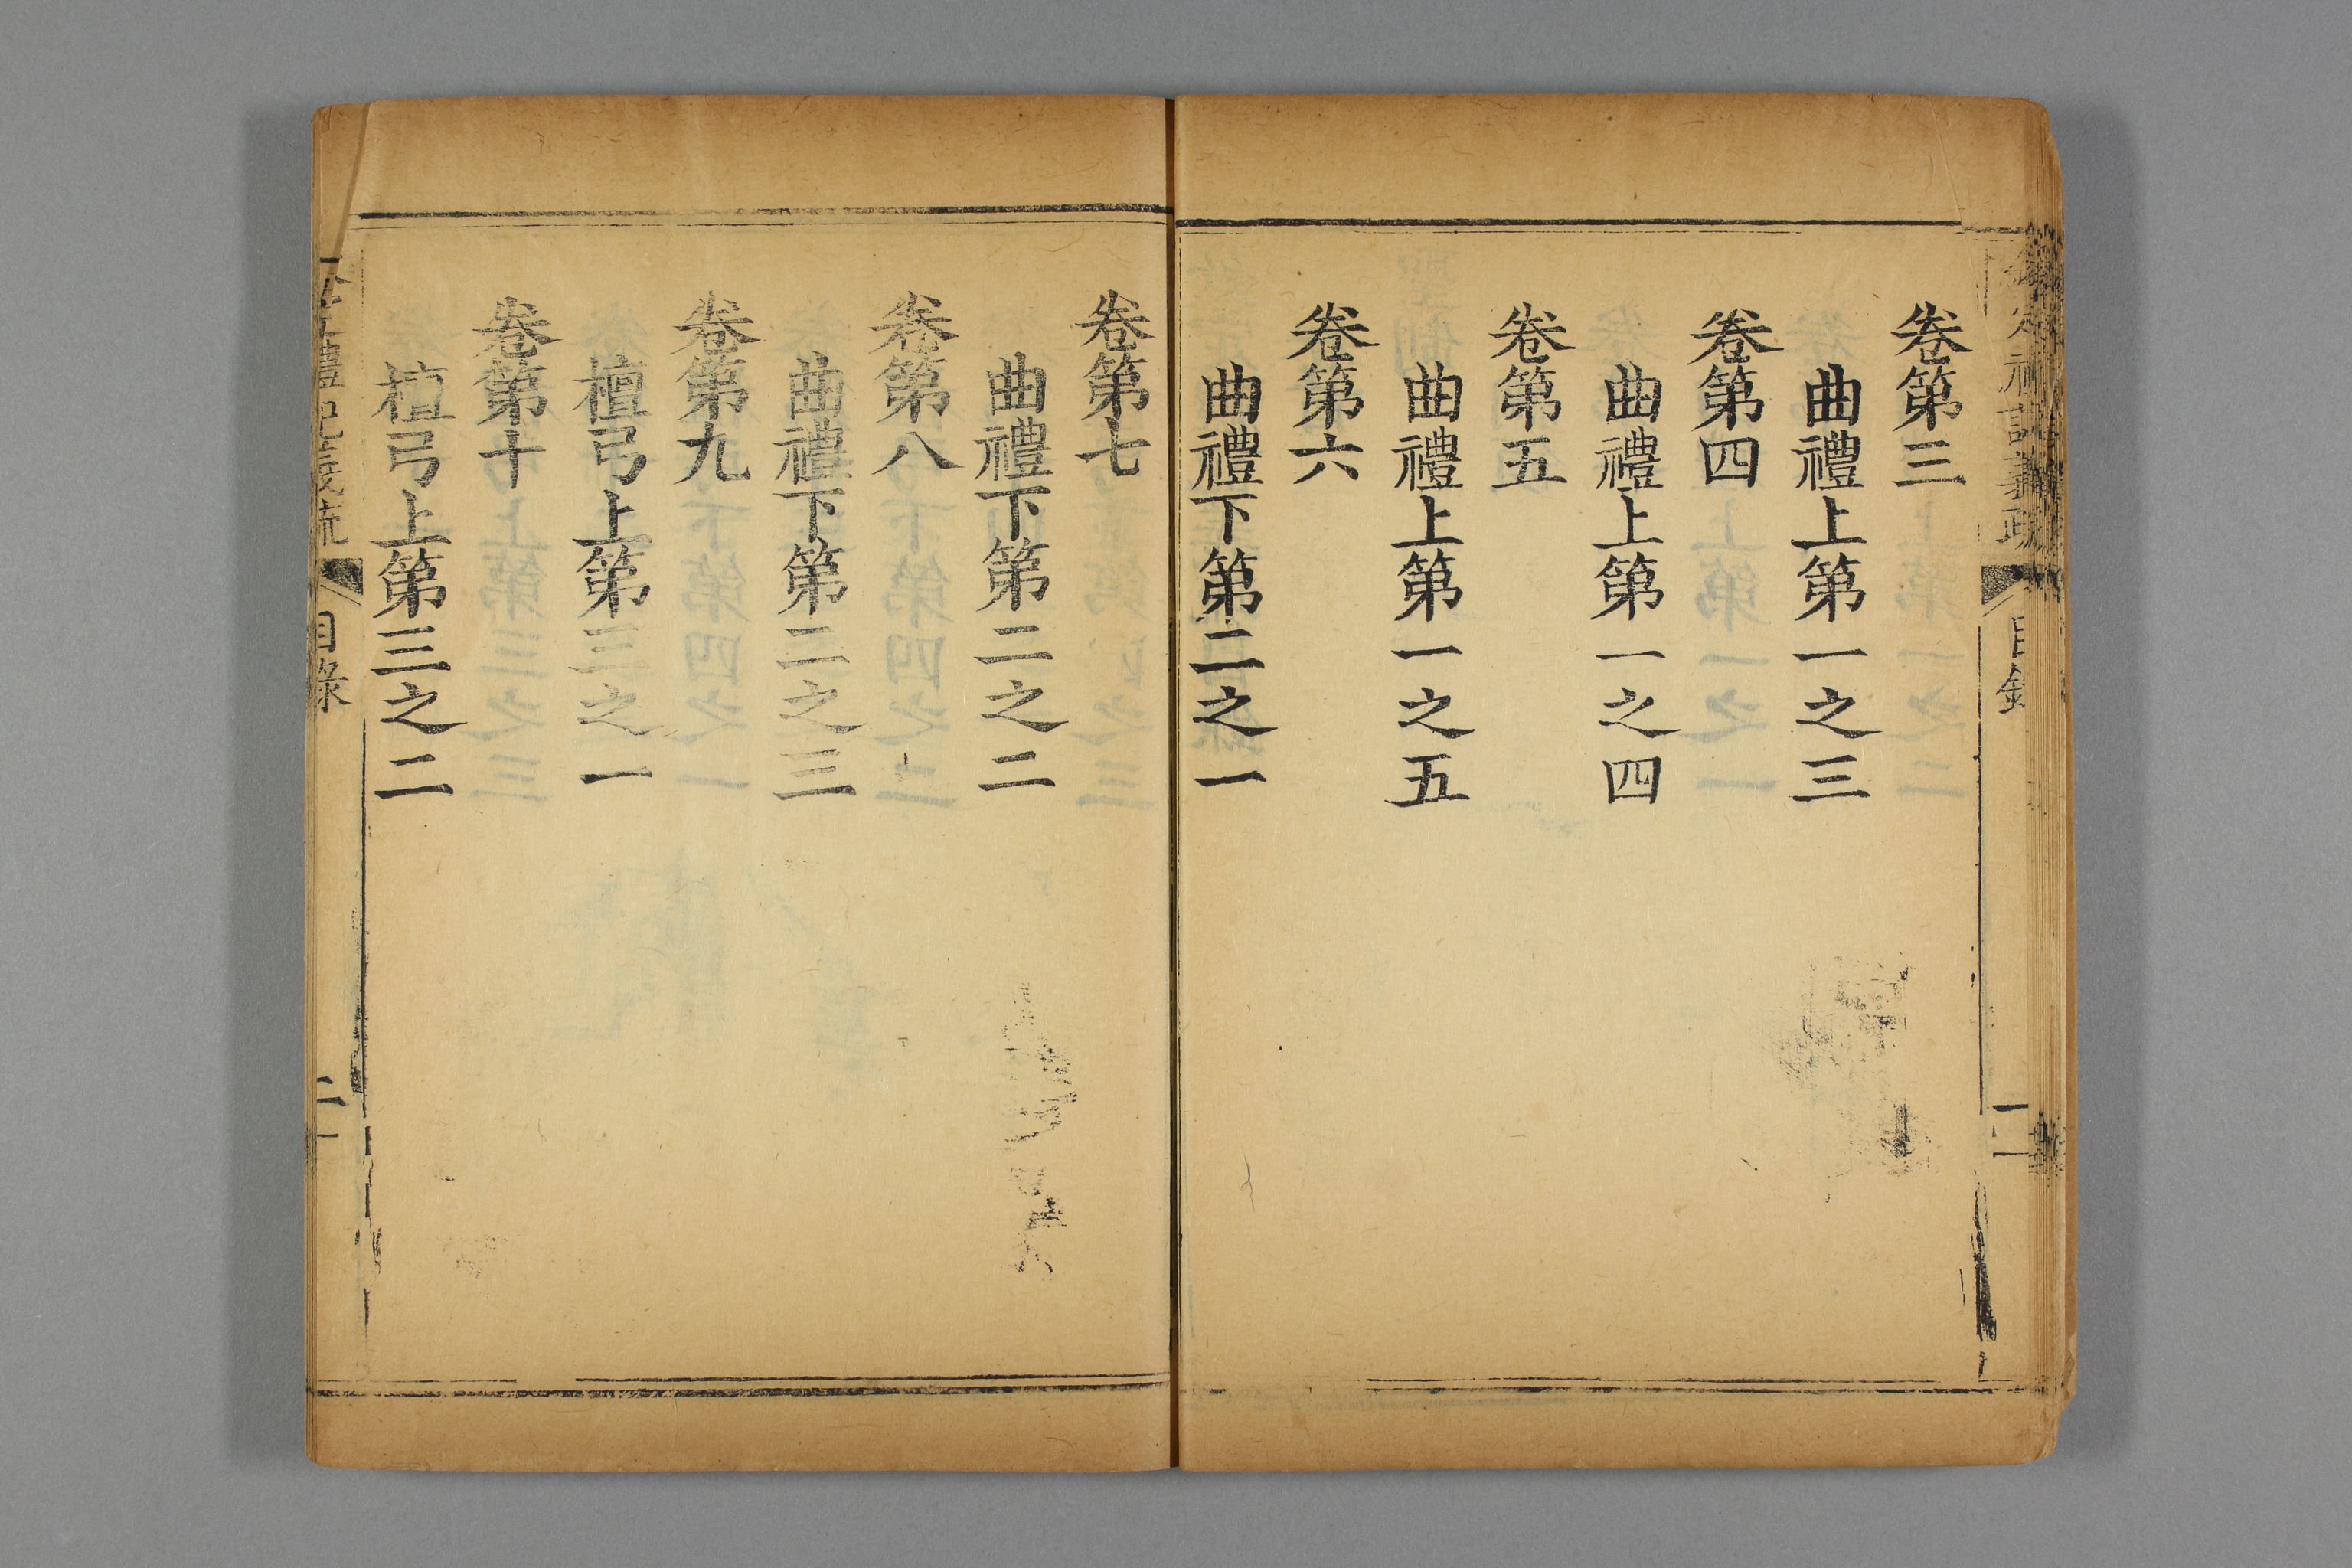 卷第三
曲禮上第一之三
卷第四
曲禮上第一之四
卷第五
曲禮上第一之五
卷第六
曲禮下第二之一
卷第七
曲禮下第二之二
卷第八
曲禮下第二之三
卷第九
檀弓上第三之一
卷第十
檀弓上第三之二
目錄